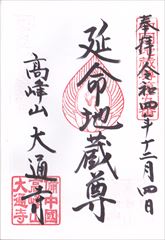 奉拝 令和四年十二月四日
延命地蔵尊
高峰山 大通寺
備中國
高峰山
大通寺